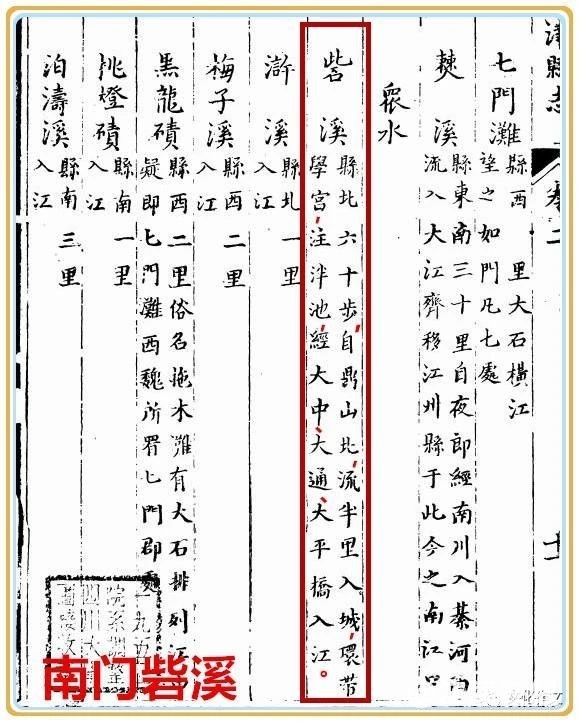 津縣志
卷二
七門灘
縣西 里大石橫江
望之如門凡七處
僰溪
縣東南三十里自夜郎經南川入綦河白
流入大江齊移江州縣于此今之南江口
眾水
砦溪
縣北六十步，自鼎山北，流半里入城，環帶
學宮，注泮池，經大中、大通、大平橋入江。
滸溪
縣北一里
入江
梅子溪
縣西二里
入江
黑龍磧
縣西二里俗名拖木灘有大石排列江
疑即七門灘西魏所署七門郡
挑燈磧
縣南一里
入江
泊濤溪
縣南三里
入江
一九五
院系調整
四川大
南门砦溪